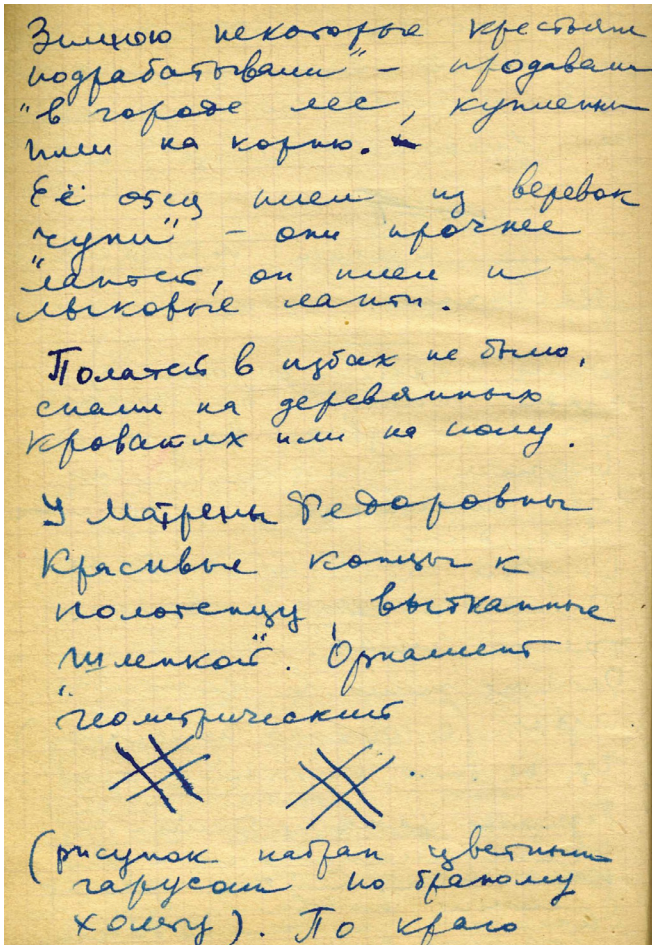 Зимою некоторые крестьяне
подрабатывали" – продавали
"в городе лес, купленный
ими на корню.
Её отец плел из веревок
чуни" – они прочнее
"лаптей, он плел и
лыковые лапти.
Полатей в избах не было,
спали на деревянных
кроватях или на полу.
У Матрены Федоровны
красивые концы к
полотенцу, вытканные
шлепкой". Орнамент
"геометрический
(рисунок набран цветным
гарусом по браному
холсту). По краю